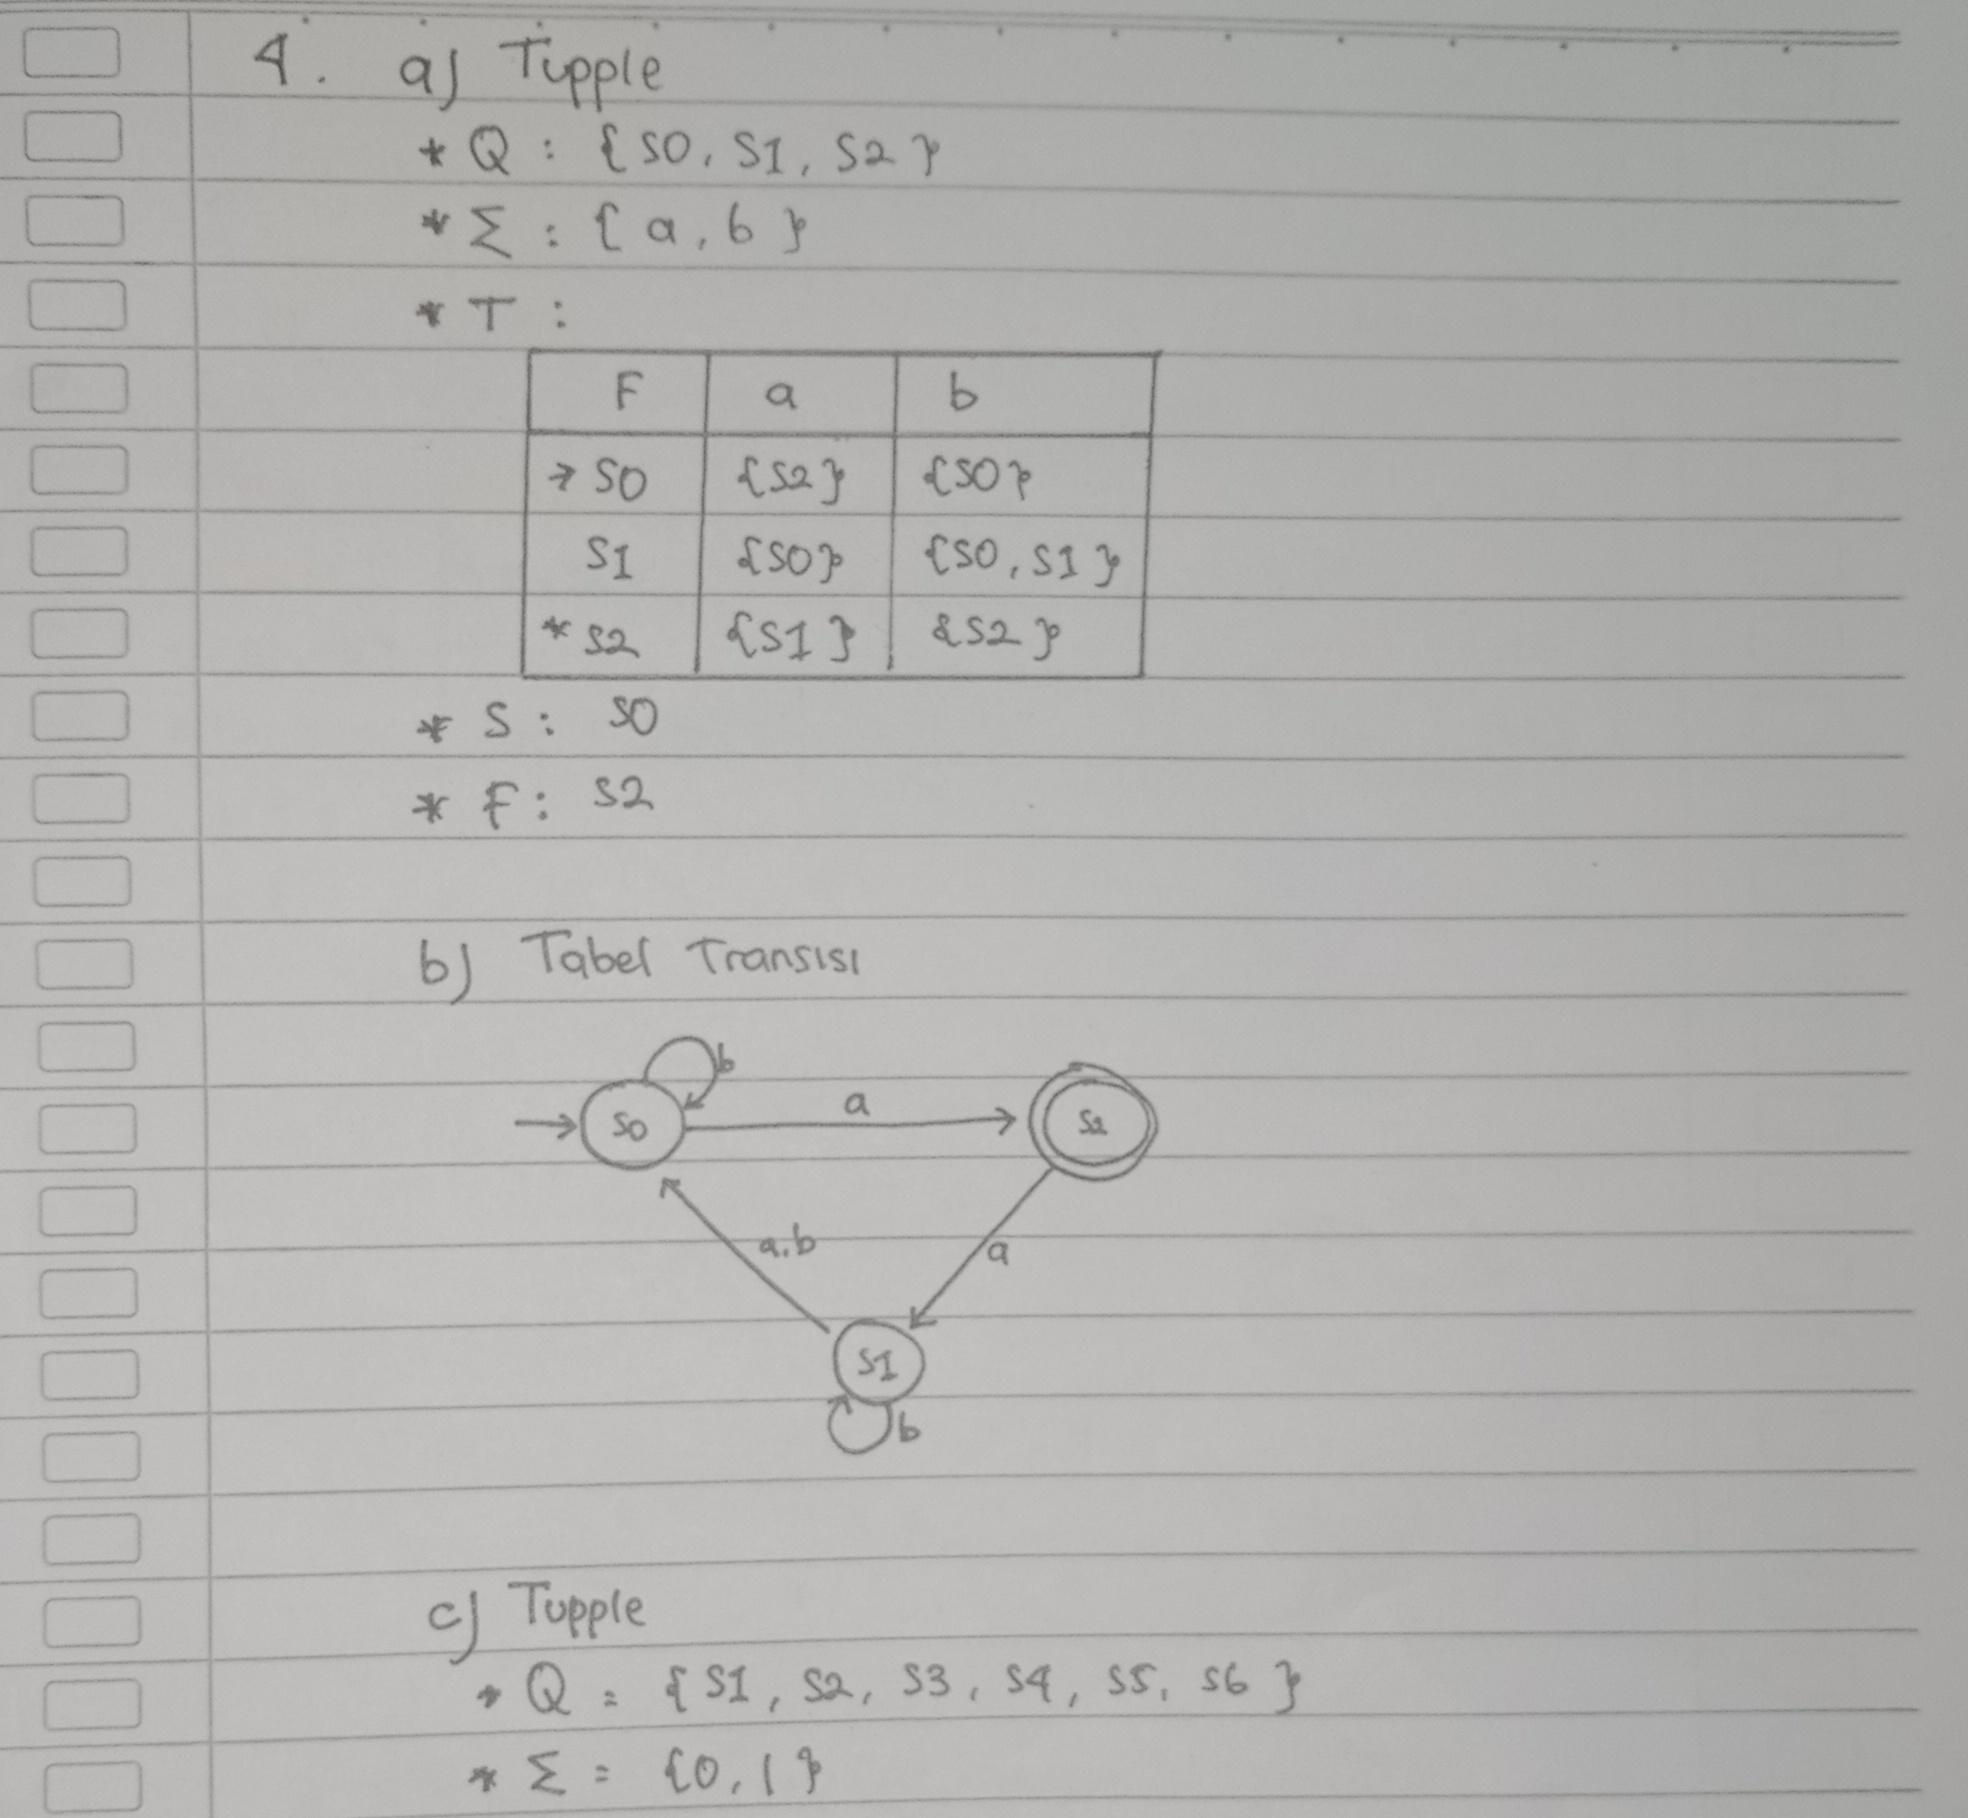 4. a) Tupple
* Q : {S0, S1, S2}
* Σ : {a, b}
* T :
F a b
→ S0 {S2} {S0}
S1 {S0} {S0, S1}
* S2 {S1} {S2}
* S : S0
* F : S2
b) Tabel Transisi
b
S0 a S2
a,b a
S1
b
c) Tupple
* Q = {S1, S2, S3, S4, S5, S6}
* Σ = {0, 1}